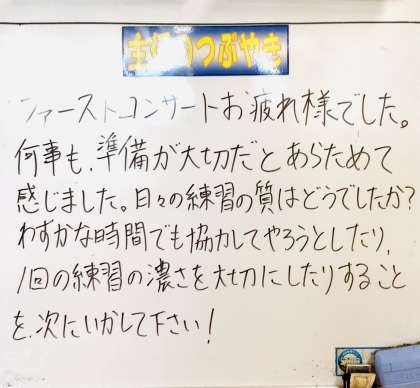 のつぶやき
ファーストコンサートお疲れ様でした。
何事も、準備が大切だとあらためて
感じました。日々の練習の質はどうでしたか?
わずかな時間でも協力してやろうとしたり、
1回の練習の濃さを大切にしたりすること
を、次にいかして下さい!